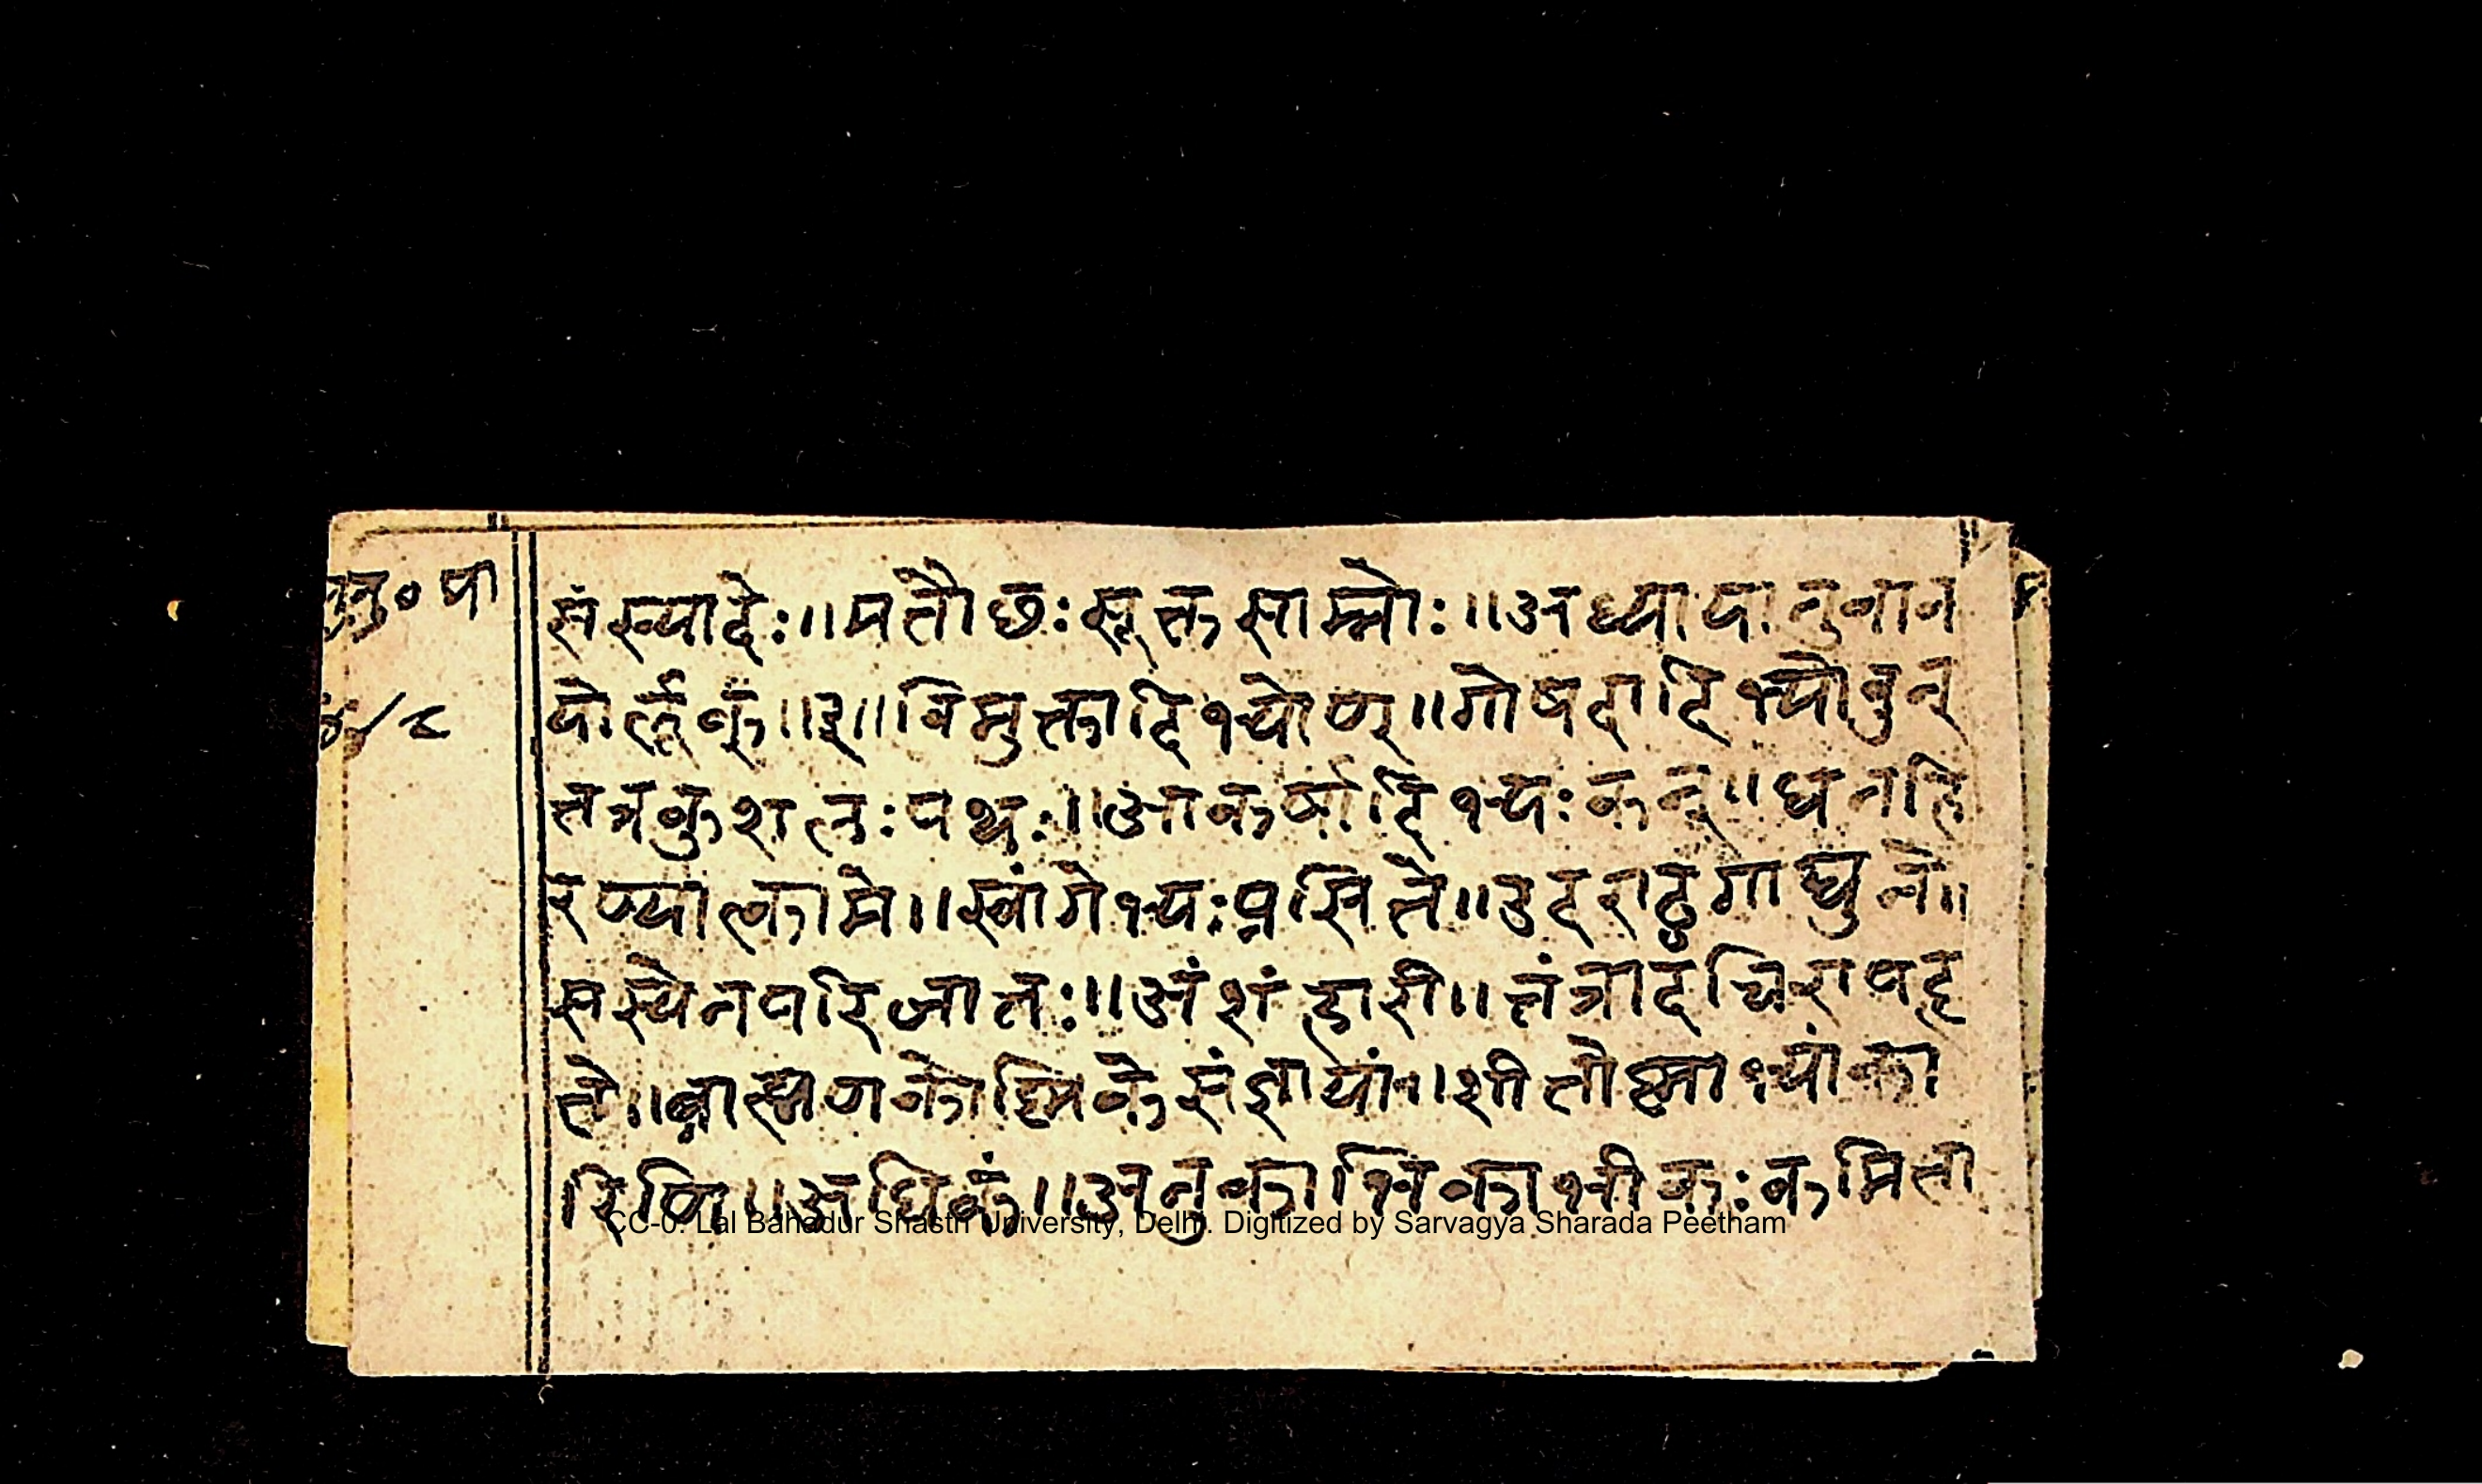 नु० पा
४८
संख्यादेः ॥ मतौ छः सूक्तसाम्नोः ॥ अध्यायानुवाक
योर्लुक् ॥ ३ ॥ विमुक्तादिभ्योण् ॥ गोषदादिभ्योवुन्
तत्रकुशलः पथः ॥ आकर्षादिभ्यः कन् ॥ धनहि
रण्यात्कामे ॥ स्वांगेभ्यः प्रसिते ॥ उदराट्ठगाद्यूने ॥
सस्येनपरिजातः ॥ अंशंहारी ॥ तंत्रादचिरापहृ
ते ॥ ब्राह्मणकोष्णिकेसंज्ञायां ॥ शीतोष्णाभ्यांका
रिणि ॥ अधिकं ॥ अनुकाभिकाभीकः कमिता
CC-0. Lal Bahadur Shastri University, Delhi. Digitized by Sarvagya Sharada Peetham